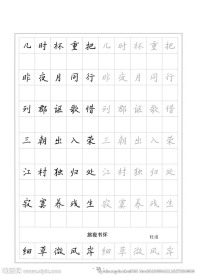 几时杯重把几时杯重把
昨夜月同行昨夜月同行
列郡讴歌惜列郡讴歌惜
三朝出入荣三朝出入荣
江村独归处江村独归处
寂寞养残生寂寞养残生
旅夜书怀 杜甫
细草微风岸细草微风岸